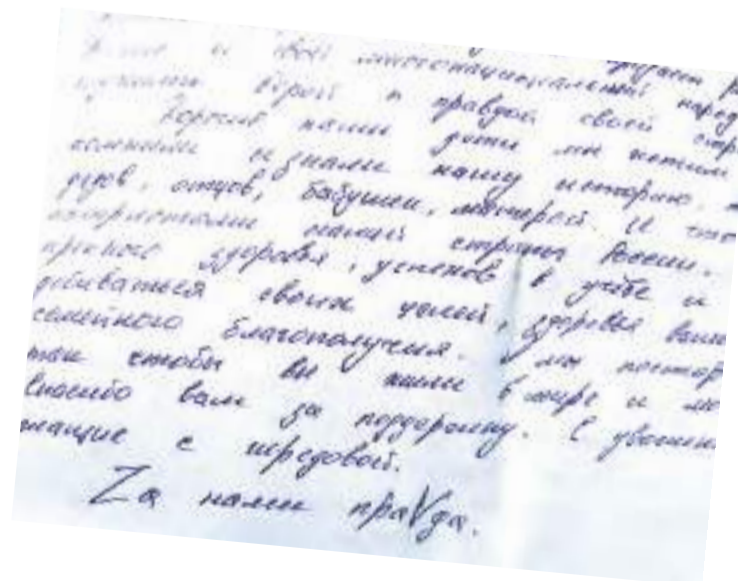 и свой многонациональный народ
верой и правдой своей стр
Дорогие наши дети мы хотим
помнили и знали нашу историю,
дедов, отцов, бабушек, матерей. И
нашей страны России.
крепкого здоровья, успехов в учебе и
добиваться своих целей, здоровья ваши
семейного благополучия. мы постар
так чтобы вы жили в мире и
Спасибо вам за поддержку. С уважени
с передовой.
Zа нами праVда.